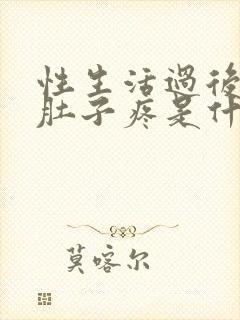 性生活過後
肚子疼是什
莫喀尔